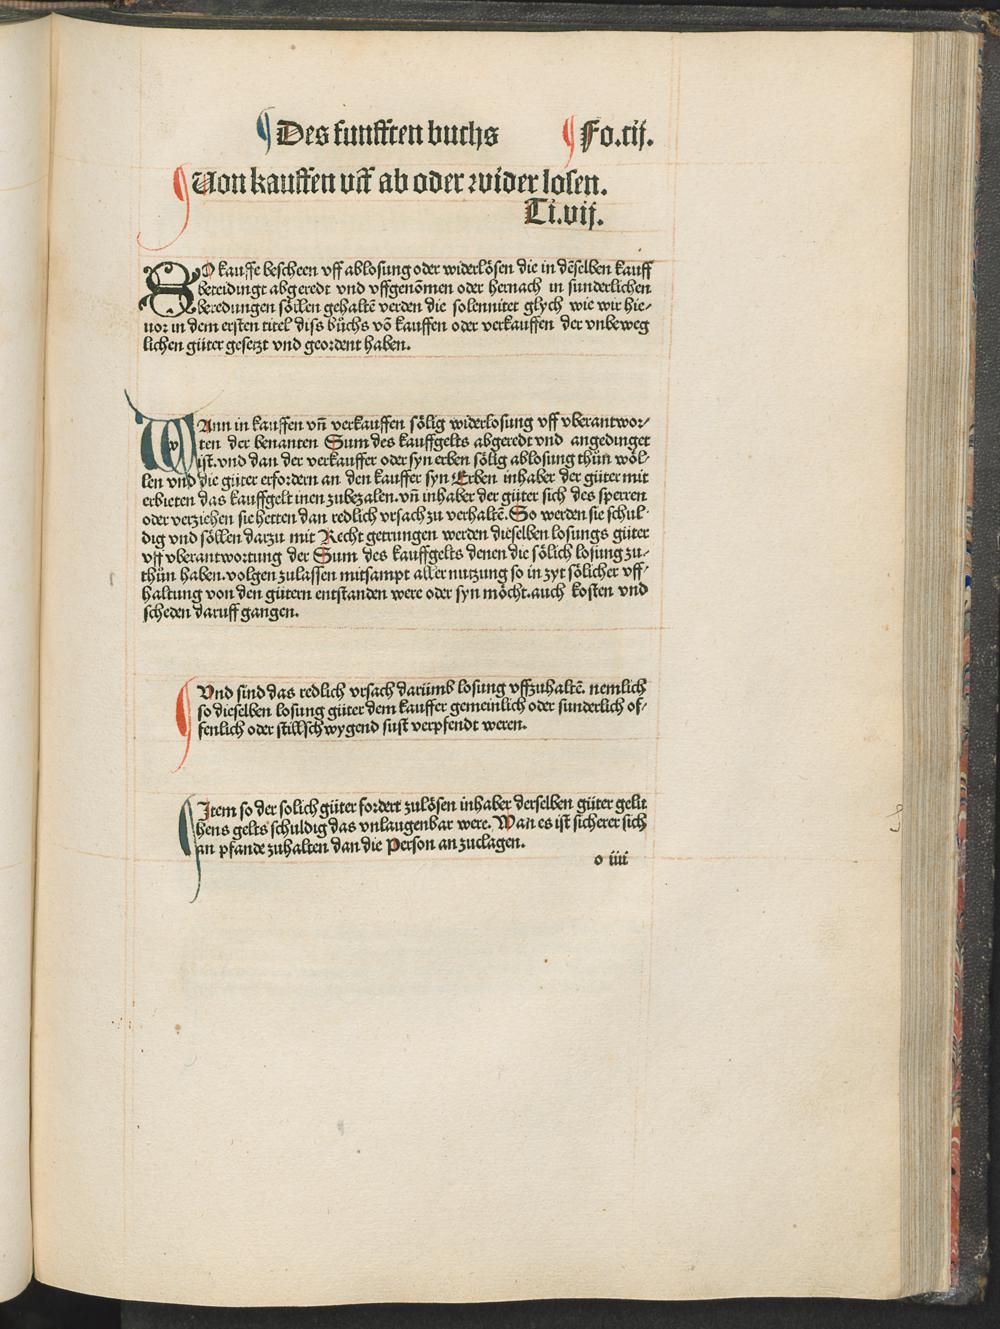 Des funfften buchs Fo.cij.
Von kauffen vff ab oder wider losen.
Ti.vij.
SO kauffe bescheen vff ablosung oder widerlösen die in dēselben kauff
beteidingt abgeredt vnd vffgenōmen oder hernach in sunderlichen
beredungen söllen gehaltē werden die solennitet glych wie wir hie-
uor in dem ersten titel diss bůchs vō kauffen oder verkauffen der vnbeweg
lichen gůter gesetzt vnd geordent haben.
WAnn in kauffen vn̄ verkauffen sölig widerlosung vff vberantwor-
ten der benanten Sum des kauffgelts abgeredt vnd angedinget
ist. vnd dan der verkauffer oder syn erben sölig ablosung thůn wöl-
len vnd die gůter erfordern an den kauffer syn Erben inhaber der gůter mit
erbieten das kauffgelt inen zubezalen. vn̄ inhaber der gůter sich des sperren
oder verziehen sie hetten dan redlich vrsach zu verhaltē. So werden sie schul-
dig vnd söllen darzu mit Recht getrungen werden dieselben losungs gůter
vff vberantwortung der Sum des kauffgelts denen die sölich losung zu-
thůn haben. volgen zulassen mitsampt aller nutzung so in zyt sölicher vff-
haltung von den gůtern entstanden were oder syn möcht. auch kosten vnd
scheden daruff gangen.
Vnd sind das redlich vrsach darůmb losung vffzuhaltē. nemlich
so dieselben losung gůter dem kauffer gemeinlich oder sunderlich of-
fenlich oder stillschwygend sust verpfendt weren.
Item so der solich gůter fordert zulösen inhaber derselben gůter gelu
hens gelts schuldig das vnlaugenbar were. Wan es ist sicherer sich
an pfande zuhalten dan die Person an zuclagen.
o iiii